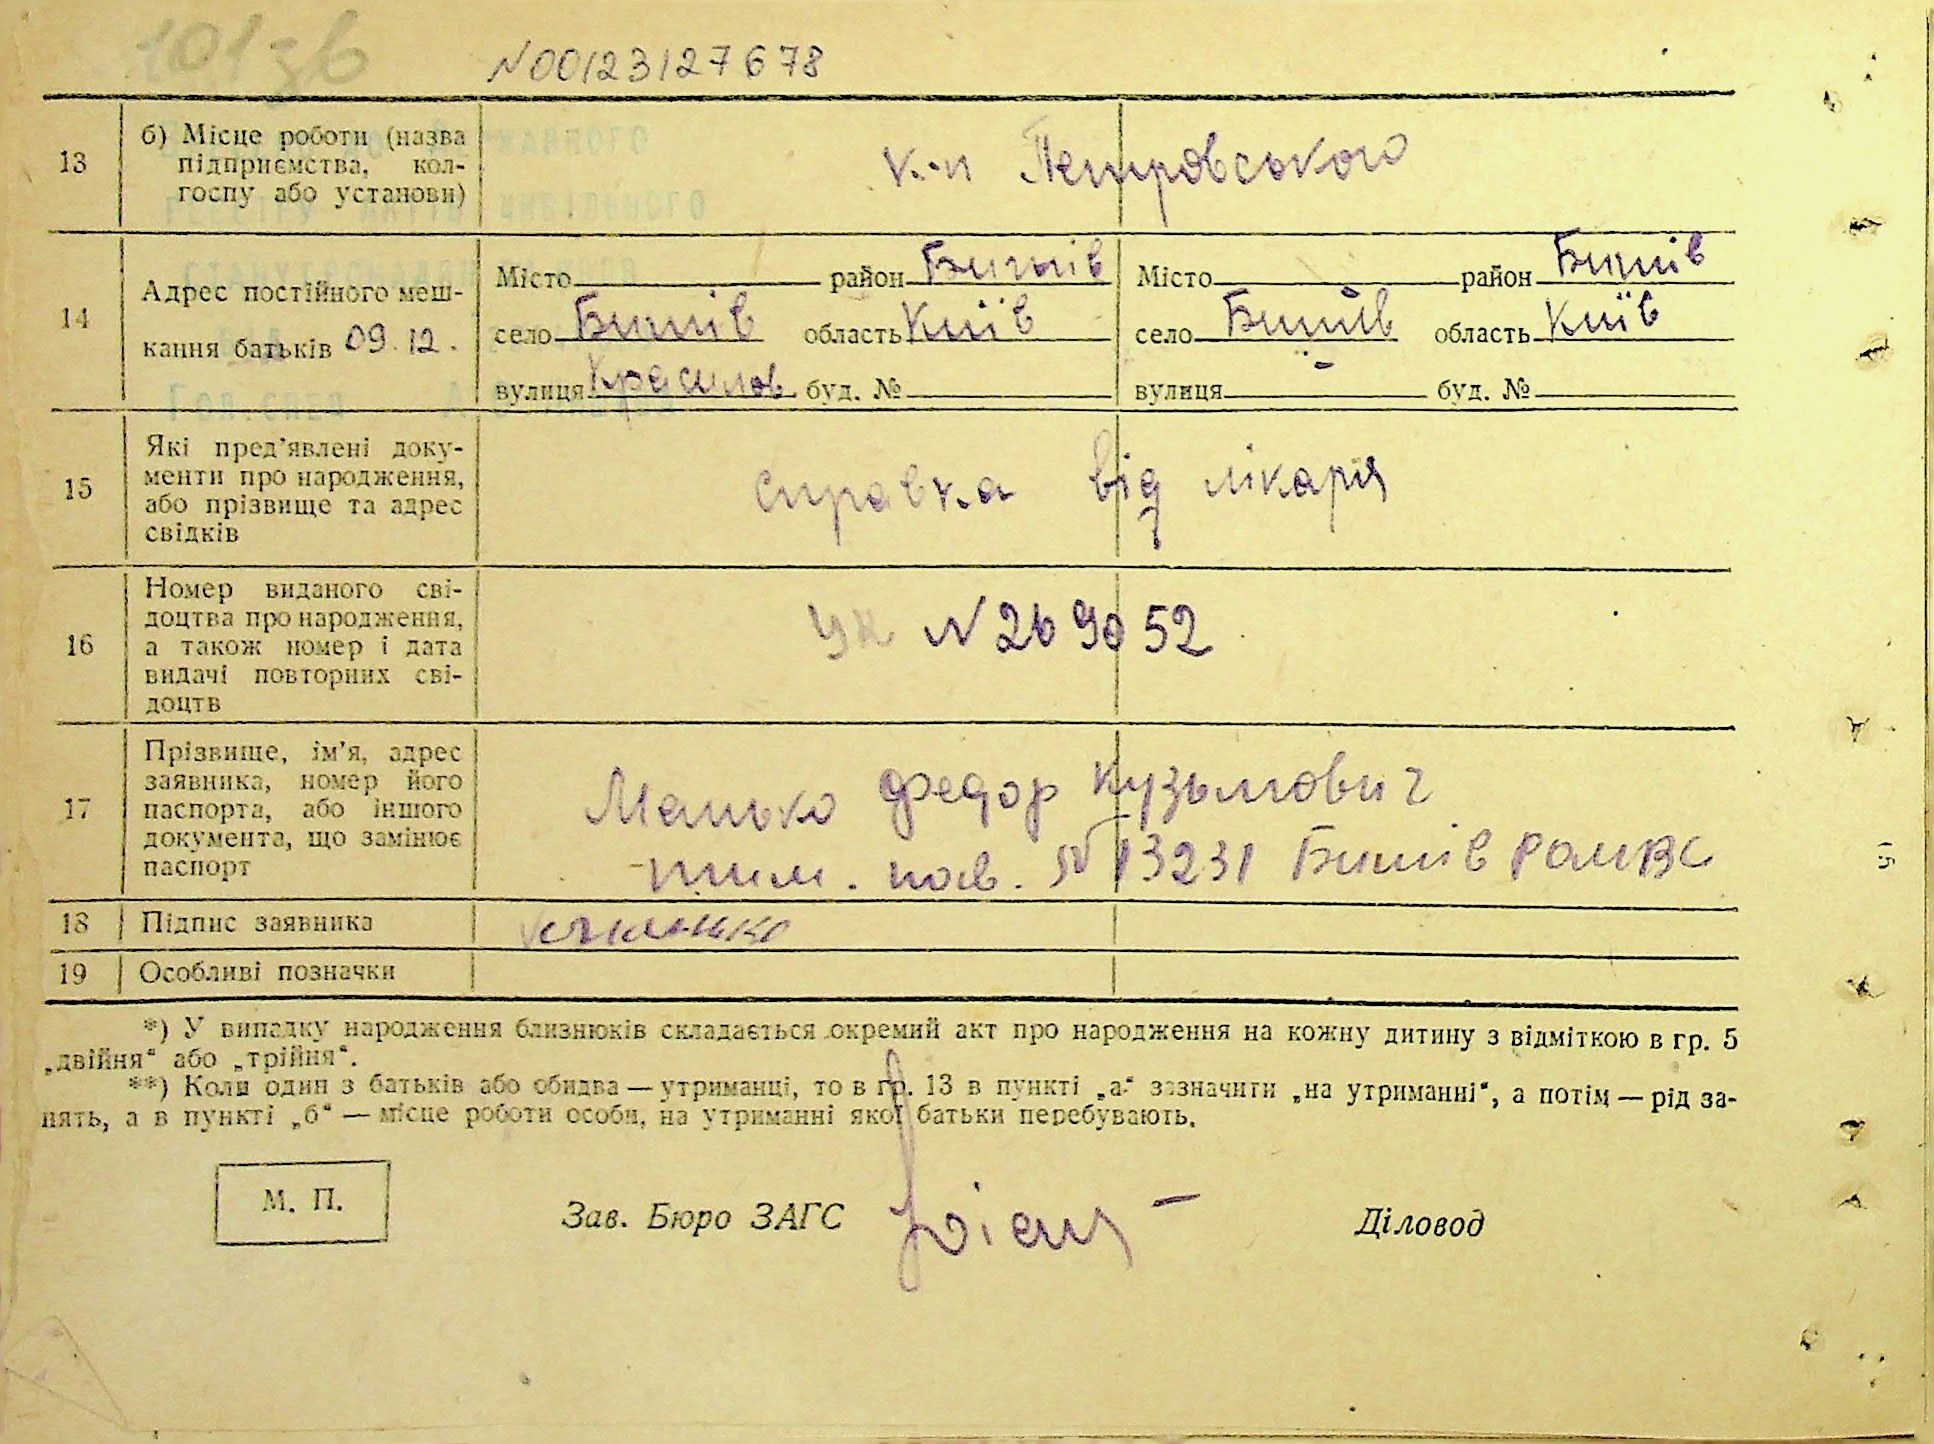 101 зв
N00123127678
13
б) Місце роботи (назва
підприємства, кол-
госпу або установи)
к-п Петровського
14
Адрес постійного меш-
кання батьків 09.12.
Місто район Бишів
село Бишів область Київ
вулиця буд. №
Місто район Бишів
село Бишів область Київ
вулиця - буд. №
15
Які пред'явлені доку-
менти про народження,
або прізвище та адрес
свідків
справка від лікаря
16
Номер виданого сві-
доцтва про народження,
а також номер і дата
видачі повторних сві-
доцтв
УК N 269052
17
Прізвище, ім'я, адрес
заявника, номер його
паспорта, або іншого
документа, що замінює
паспорт
Манько Федор Кузьмович
тим. пов. № 13231 Бишів
18
Підпис заявника
19
Особливі позначки
*) У випадку народження близнюків складається окремий акт про народження на кожну дитину з відміткою в гр. 5
„двійня“ або „трійня“.
**) Коли один з батьків або обидва — утриманці, то в гр. 13 в пункті „а“ зазначити „на утриманні“, а потім — рід за-
нять, а в пункті „б“ — місце роботи особи, на утриманні якої батьки перебувають.
М. П.
Зав. Бюро ЗАГС
Діловод